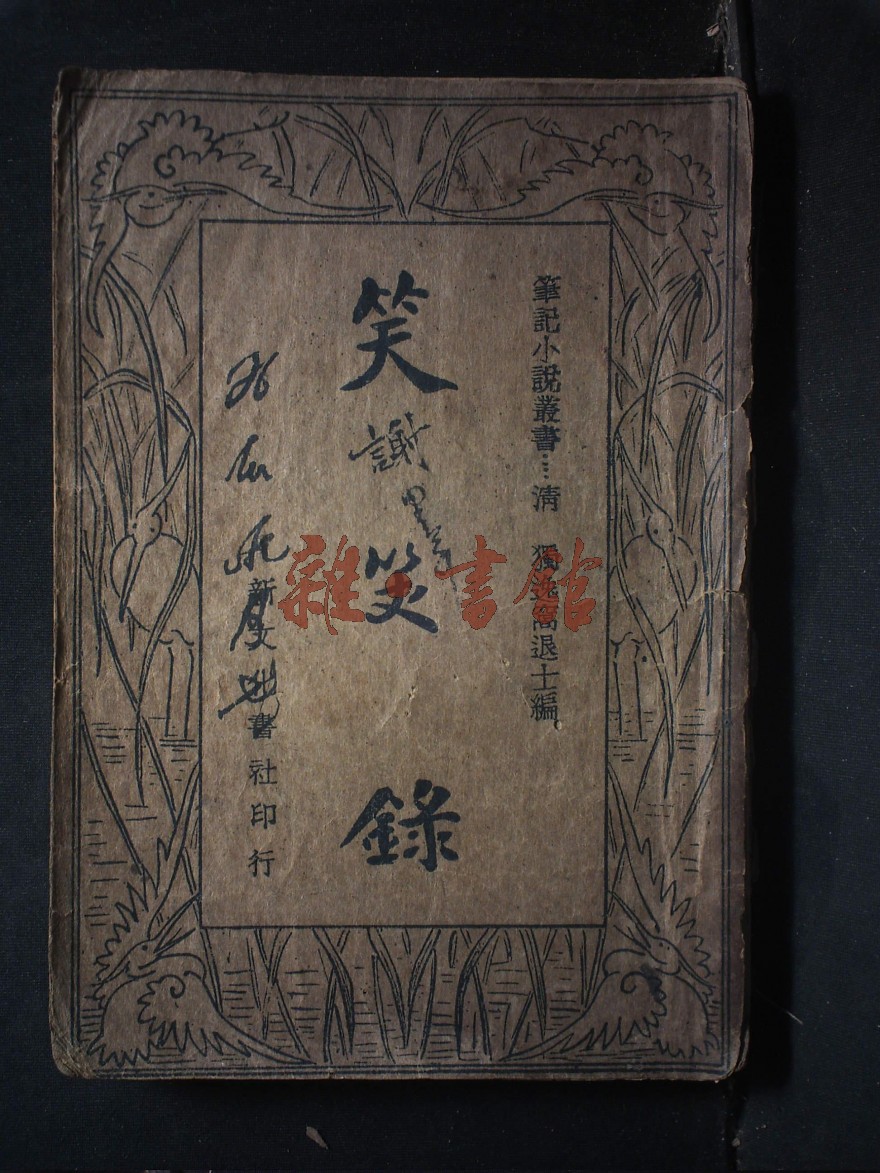 筆記小說叢書…清 獨逸窩退士編
笑笑錄
謝
新文化書社印行
雜·書館